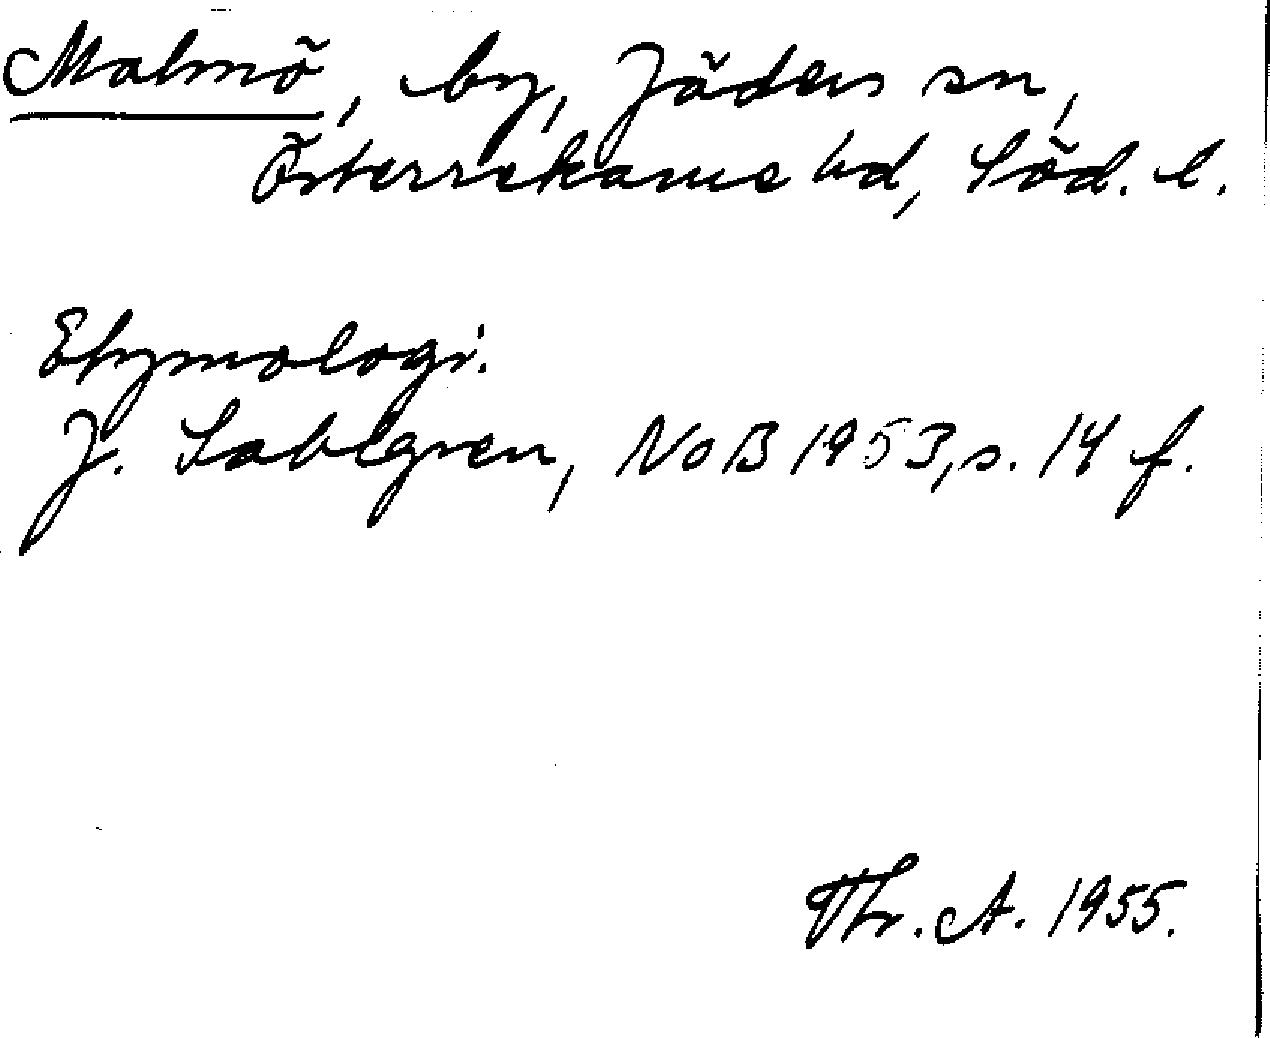 Malmö, by, Jäders sn,
Österrekarne hd, Söd. l.
Etymologi.
J. Sahlgren, NoB 1953, s. 14 f.
Th. A. 1955.